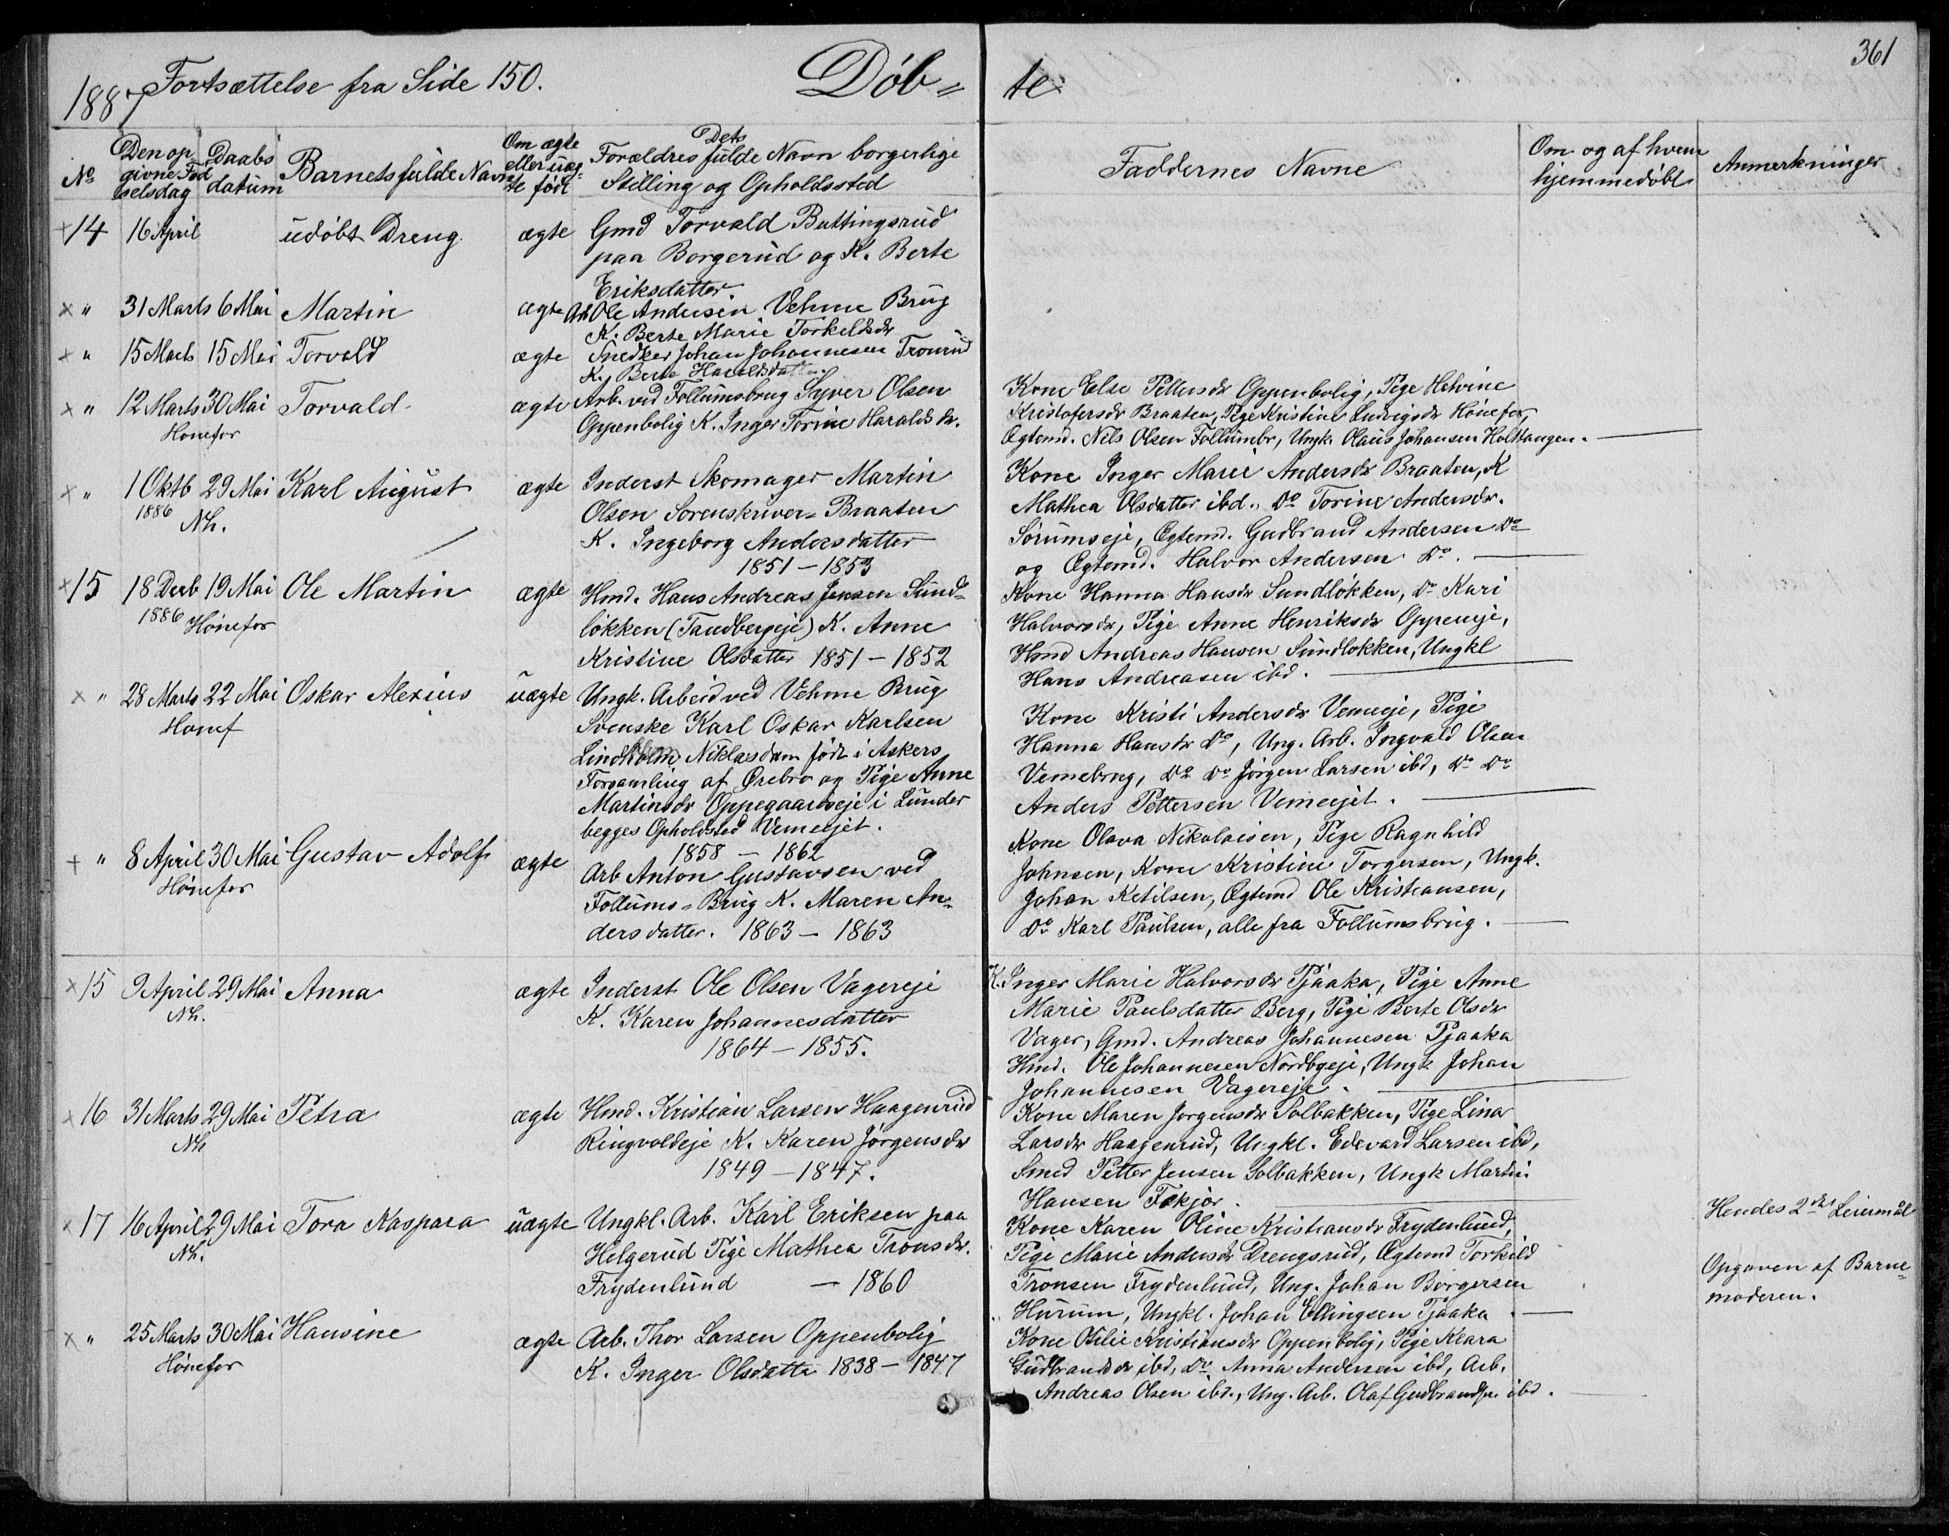 361
1887 Fortsættelse fra Side 150. Døb= te
No
Den op
givne Fød
selsdag
Daabs
datum
Barnets fulde Navn
Om ægte
eller uæg-
te født
Dets
Forældres fulde Navn borgerlige
Stilling og Opholdssted
Faddernes Navne
Om og af hvem
hjemmedøbt
Anmerkninger
14 16 April udøbt Dreng ægte Gmd Torvald Buttingsrud
paa Borgerud og K. Berte
Eriksdatter.
" 31 Marts 6 Mai Martin ægte Arb Ole Andersen Vehme Brug
K. Berte Marie Torkeldsdr
" 15 Marts 15 Mai Torvald ægte Snedker Johan Johannesen Tronrud
K. Berte Haraldsdatter.
" 12 Marts 30 Mai Torvald ægte Arb. ved Follumsbrug Syver Olsen
Hønefos
Oppenbolig K. Inger Torine Haraldsdr.
Kone Else Pettersdr Oppenbolig, Pige Helvine
Kristofersdr Braaten, Pige Kristine Ludvigsdr Hønefos,
Ægtemd. Nils Olsen Follumbr, Ungk. Olaus Johansen Holttangen.
" 1 Oktb 29 Mai Karl August ægte Inderst Skomager Martin
1886 Nh.
Olsen Sorenskriver= Braaten
K. Ingeborg Andersdatter
1851 – 1853
Kone Inger Marie Andersdr Braaten, K
Mathea Olsdatter ibd., Do Torine Andersdr.
Sørumseje, Ægtemd. Gudbrand Andersen Do
og Ægtemd. Halvor Andersen Do.
15 18 Decb 19 Mai Ole Martin ægte Hmd. Hans Andreas Jensen Sund-
1886 Hønefos
løkken (Tandbergeje) K. Anne
Kristine Olsdatter 1851 – 1852
Kone Hanna Hansdr Sundløkken, Do Kari
Halvorsdr, Pige Anne Henriksdr Oppeneje,
Hmd Andreas Hansen Sundløkken, Ungkl
Hans Andreasen ibd.
" 28 Marts 22 Mai Oskar Alexius uægte Ungk. Arbeid ved Vehme Brug
Hønef
Svenske Karl Oskar Karlsen
Lindholm Niklasdam født i Askers
Forsamling af Ørebro og Pige Anne
Martinsdr Oppegaardseje i Lunder
begges Opholdsted Vemeejet.
1858 – 1862
Kone Kristi Andersdr Vemeeje, Pige
Hanna Hansdr Do, Ung. Arb. Ingvald Olsen
Vemebrug, Do Do Jørgen Larsen ibd, Do Do
Anders Pettersen Vemeejet.
" 8 April 30 Mai Gustav Adolf ægte Arb Anton Gustavsen ved
Hønefos
Follums= Brug K. Maren An-
dersdatter. 1863 – 1863
Kone Olava Nikolaisen, Pige Ragnhild
Johnsen, Kone Kristine Torgersen, Ungk.
Johan Ketilsen, Ægtemd Ole Kristiansen,
Do Karl Paulsen, alle fra Follumsbrug.
15 9 April 29 Mai Anna ægte Inderst Ole Olsen Vagereje
Nh.
K. Karen Johannesdatter
1864 – 1855.
K. Inger Marie Halvorsdr Pjaaka, Pige Anne
Marie Paulsdatter Berg, Pige Berte Olsdr
Vager, Gmd. Andreas Johannesen Pjaaka
Hmd. Ole Johannesen Nordbyeje, Ungk Johan
Johannesen Vagereje.
16 31 Marts 29 Mai Petra ægte Hmd. Kristian Larsen Haagenrud
Nh
Ringvoldeje K. Karen Jørgensdr
1849 – 1847.
Kone Maren Jorgensdr Solbakken, Pige Lina
Larsdr Haagenrud, Ungkl. Edevard Larsen ibd,
Smed Petter Jensen Solbakken, Ungk Martin
Hansen Fekjor.
17 16 April 29 Mai Tora Kaspara uægte Ungkl. Arb. Karl Eriksen paa
Nh.
Helgerud Pige Mathea Tronsdr.
Frydenlund – 1860
Kone Karen Oline Kristiansdr Frydenlund,
Pige Marie Andersdr Drengsrud, Ægtemd Torkild
Tronsen Frydenlund, Ung. Johan Borgersen
Hurum, Ungkl. Johan Ellingsen Tjaaka.
Hendes 2det Leiermål
Opgaven af Barne-
moderen.
" 25 Marts 30 Mai Hansine ægte Arb. Thor Larsen Oppenbolig
Hønefos
K. Inger Olsdatter 1838 – 1847
Kone Otilie Kristiansdr Oppenbolig, Pige Klara
Gudbrandsdr ibd, Do Anna Andersen ibd, Arb.
Andreas Olsen ibd., Ung. Arb. Olaf Gudbrandsen ibd.